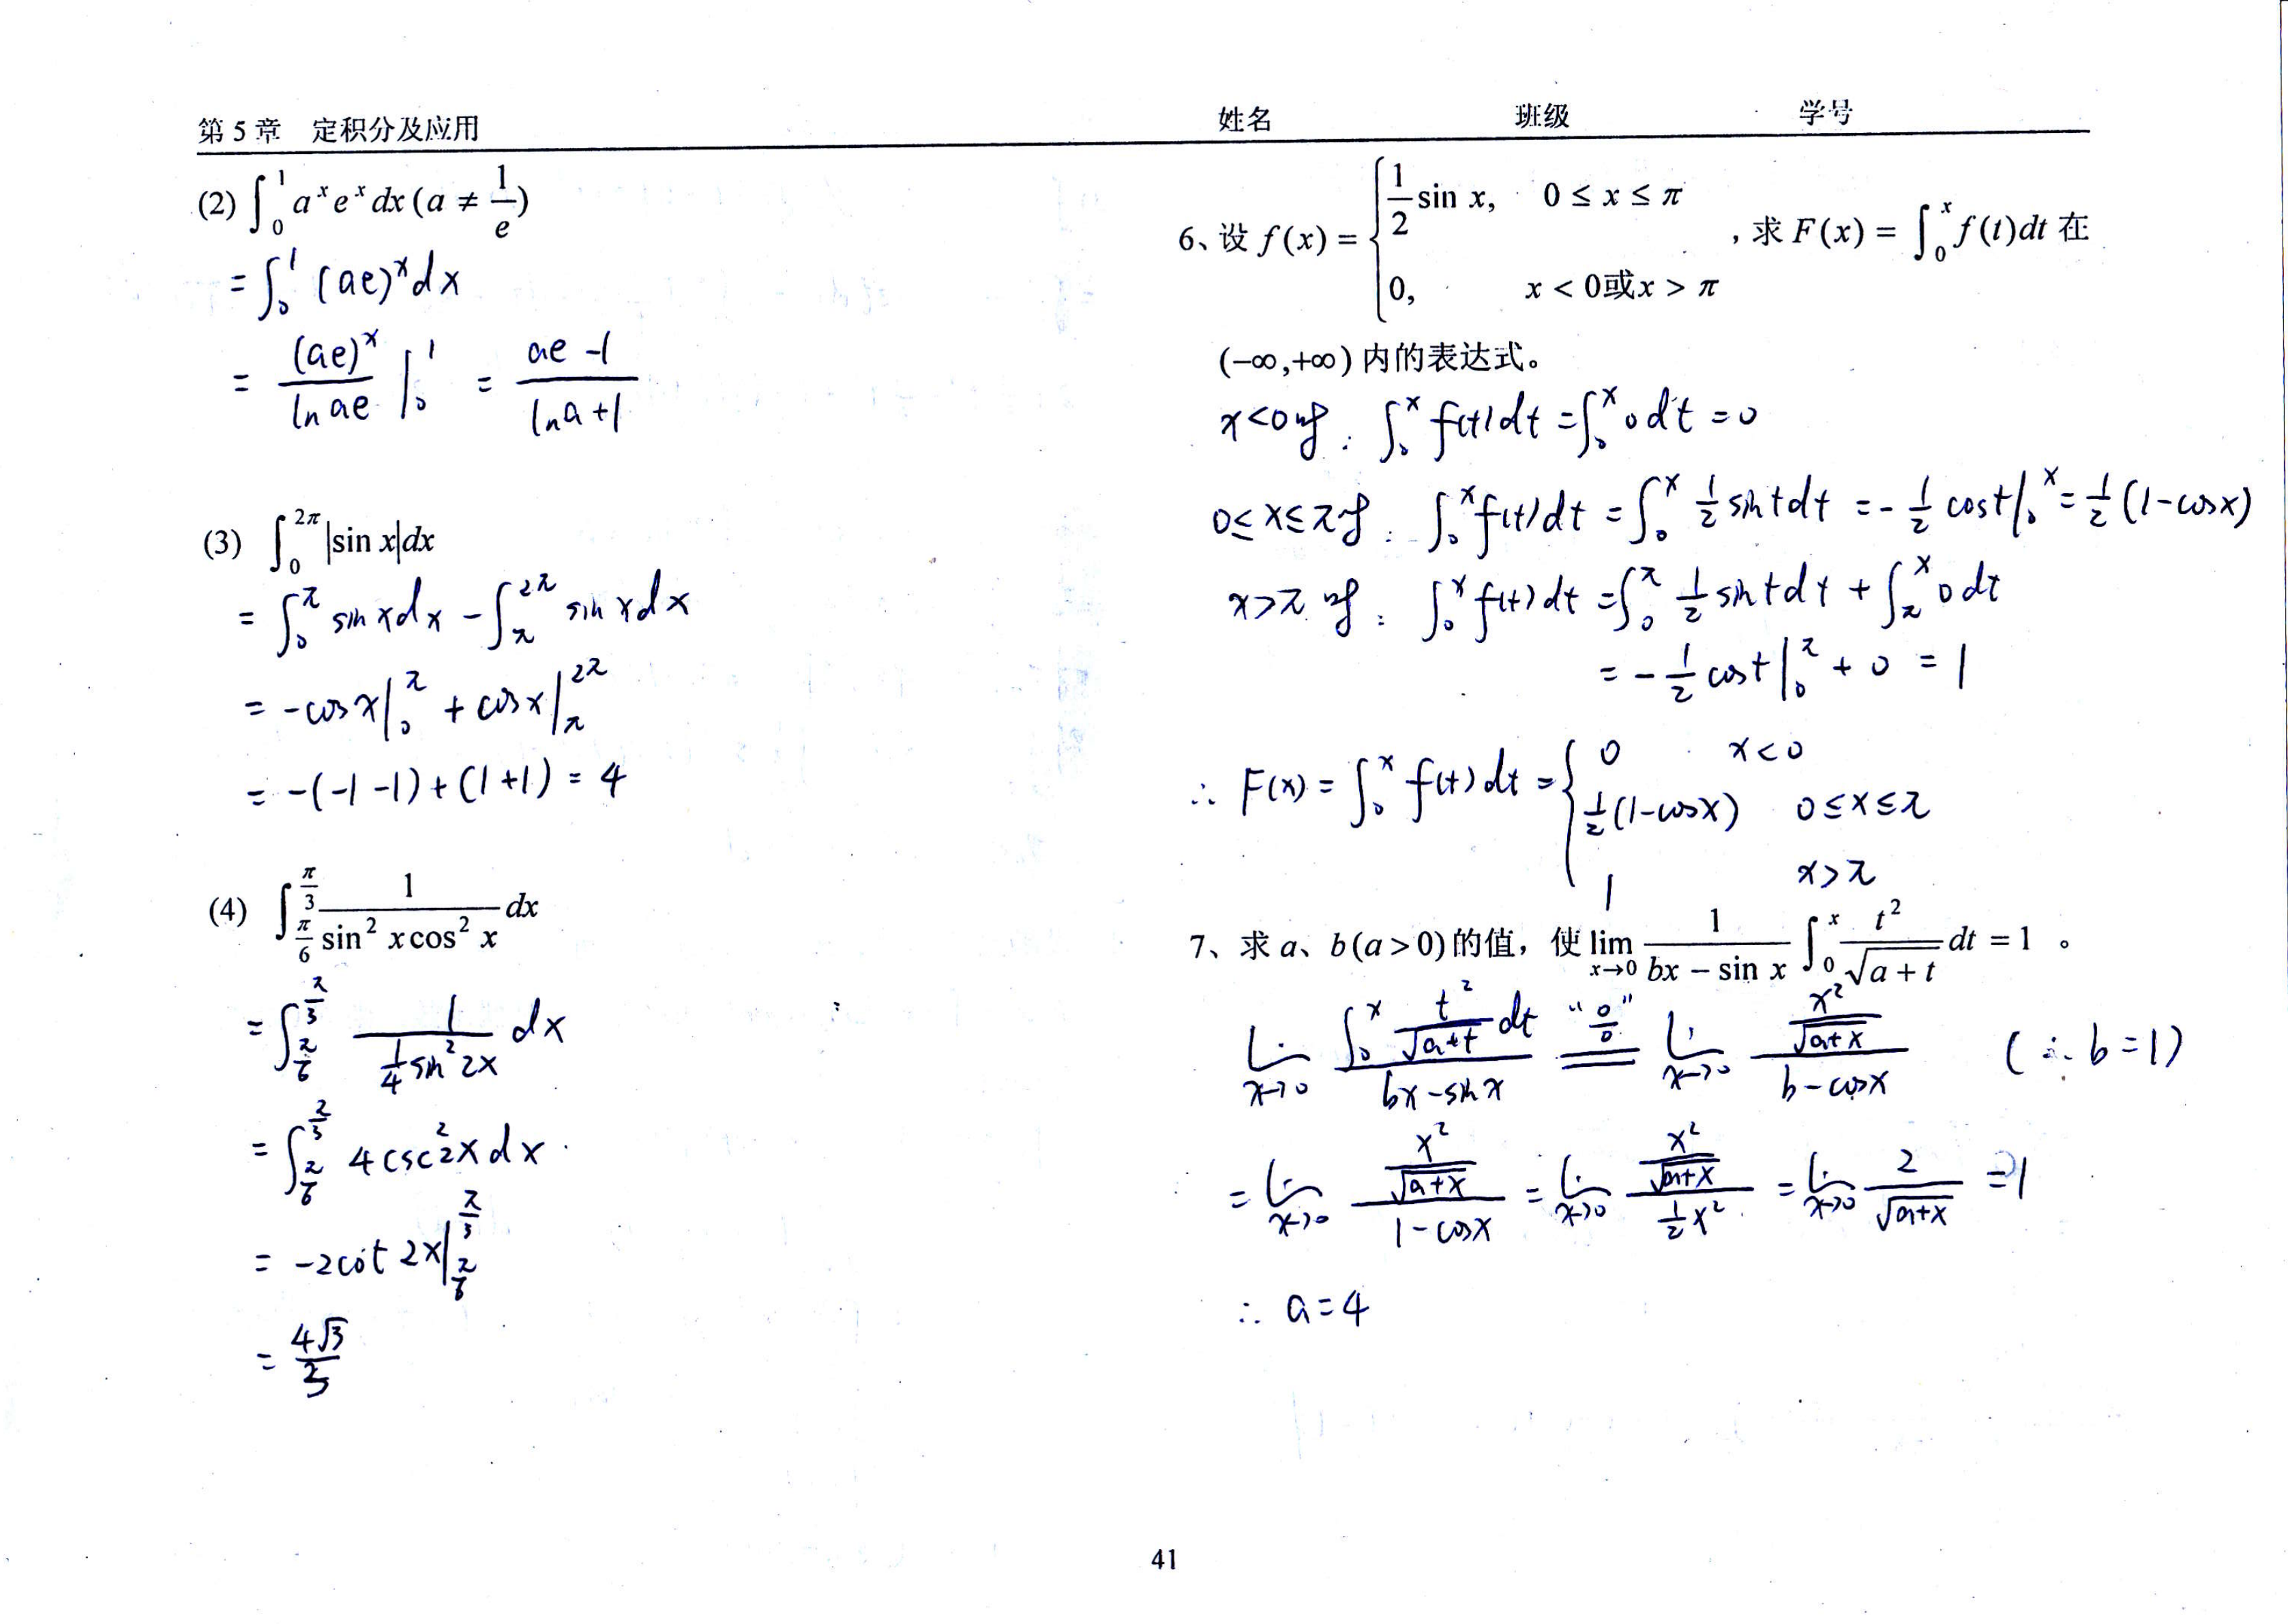 第 5 章 定积分及应用
姓名 班级 学号
(2) ∫_0^1 a^x e^x dx (a ≠ 1/e)
= ∫_0^1 (ae)^x dx
= (ae)^x / ln ae |_0^1 = (ae-1)/(ln a+1)
(3) ∫_0^{2π} |sin x|dx
= ∫_0^π sin x dx - ∫_π^{2π} sin x dx
= -cos x|_0^π + cos x|_π^{2π}
= -(-1-1)+(1+1) = 4
(4) ∫_{π/6}^{π/3} 1/(sin² x cos² x) dx
= ∫_{π/6}^{π/3} 1/(1/4 sin² 2x) dx
= ∫_{π/6}^{π/3} 4csc² 2x dx
= -2cot 2x|_{π/6}^{π/3}
= 4√3/3
6、设 f(x) = { 1/2 sin x, 0 ≤ x ≤ π
0, x < 0或x > π
,求 F(x) = ∫_0^x f(t)dt 在
(-∞,+∞) 内的表达式。
x<0时: ∫_0^x f(t)dt = ∫_0^x 0dt = 0
0≤x≤π时: ∫_0^x f(t)dt = ∫_0^x 1/2 sin t dt = -1/2 cos t|_0^x = 1/2 (1-cos x)
x>π时: ∫_0^x f(t)dt = ∫_0^π 1/2 sin t dt + ∫_π^x 0dt
= -1/2 cos t|_0^π + 0 = 1
∴ F(x) = ∫_0^x f(t)dt = { 0 x<0
1/2 (1-cos x) 0≤x≤π
1 x>π
7、求 a、b(a>0)的值，使 lim_{x→0} 1/(bx - sin x) ∫_0^x t²/√(a+t) dt = 1 。
lim_{x→0} ∫_0^x t²/√(a+t) dt / (bx-sin x) "0/0" = lim_{x→0} (x²/√(a+x))/(b-cos x) (∴ b=1)
= lim_{x→0} (x²/√(a+x))/(1-cos x) = lim_{x→0} (x²/√(a+x))/(1/2 x²) = lim_{x→0} 2/√(a+x) = 1
∴ a=4
41